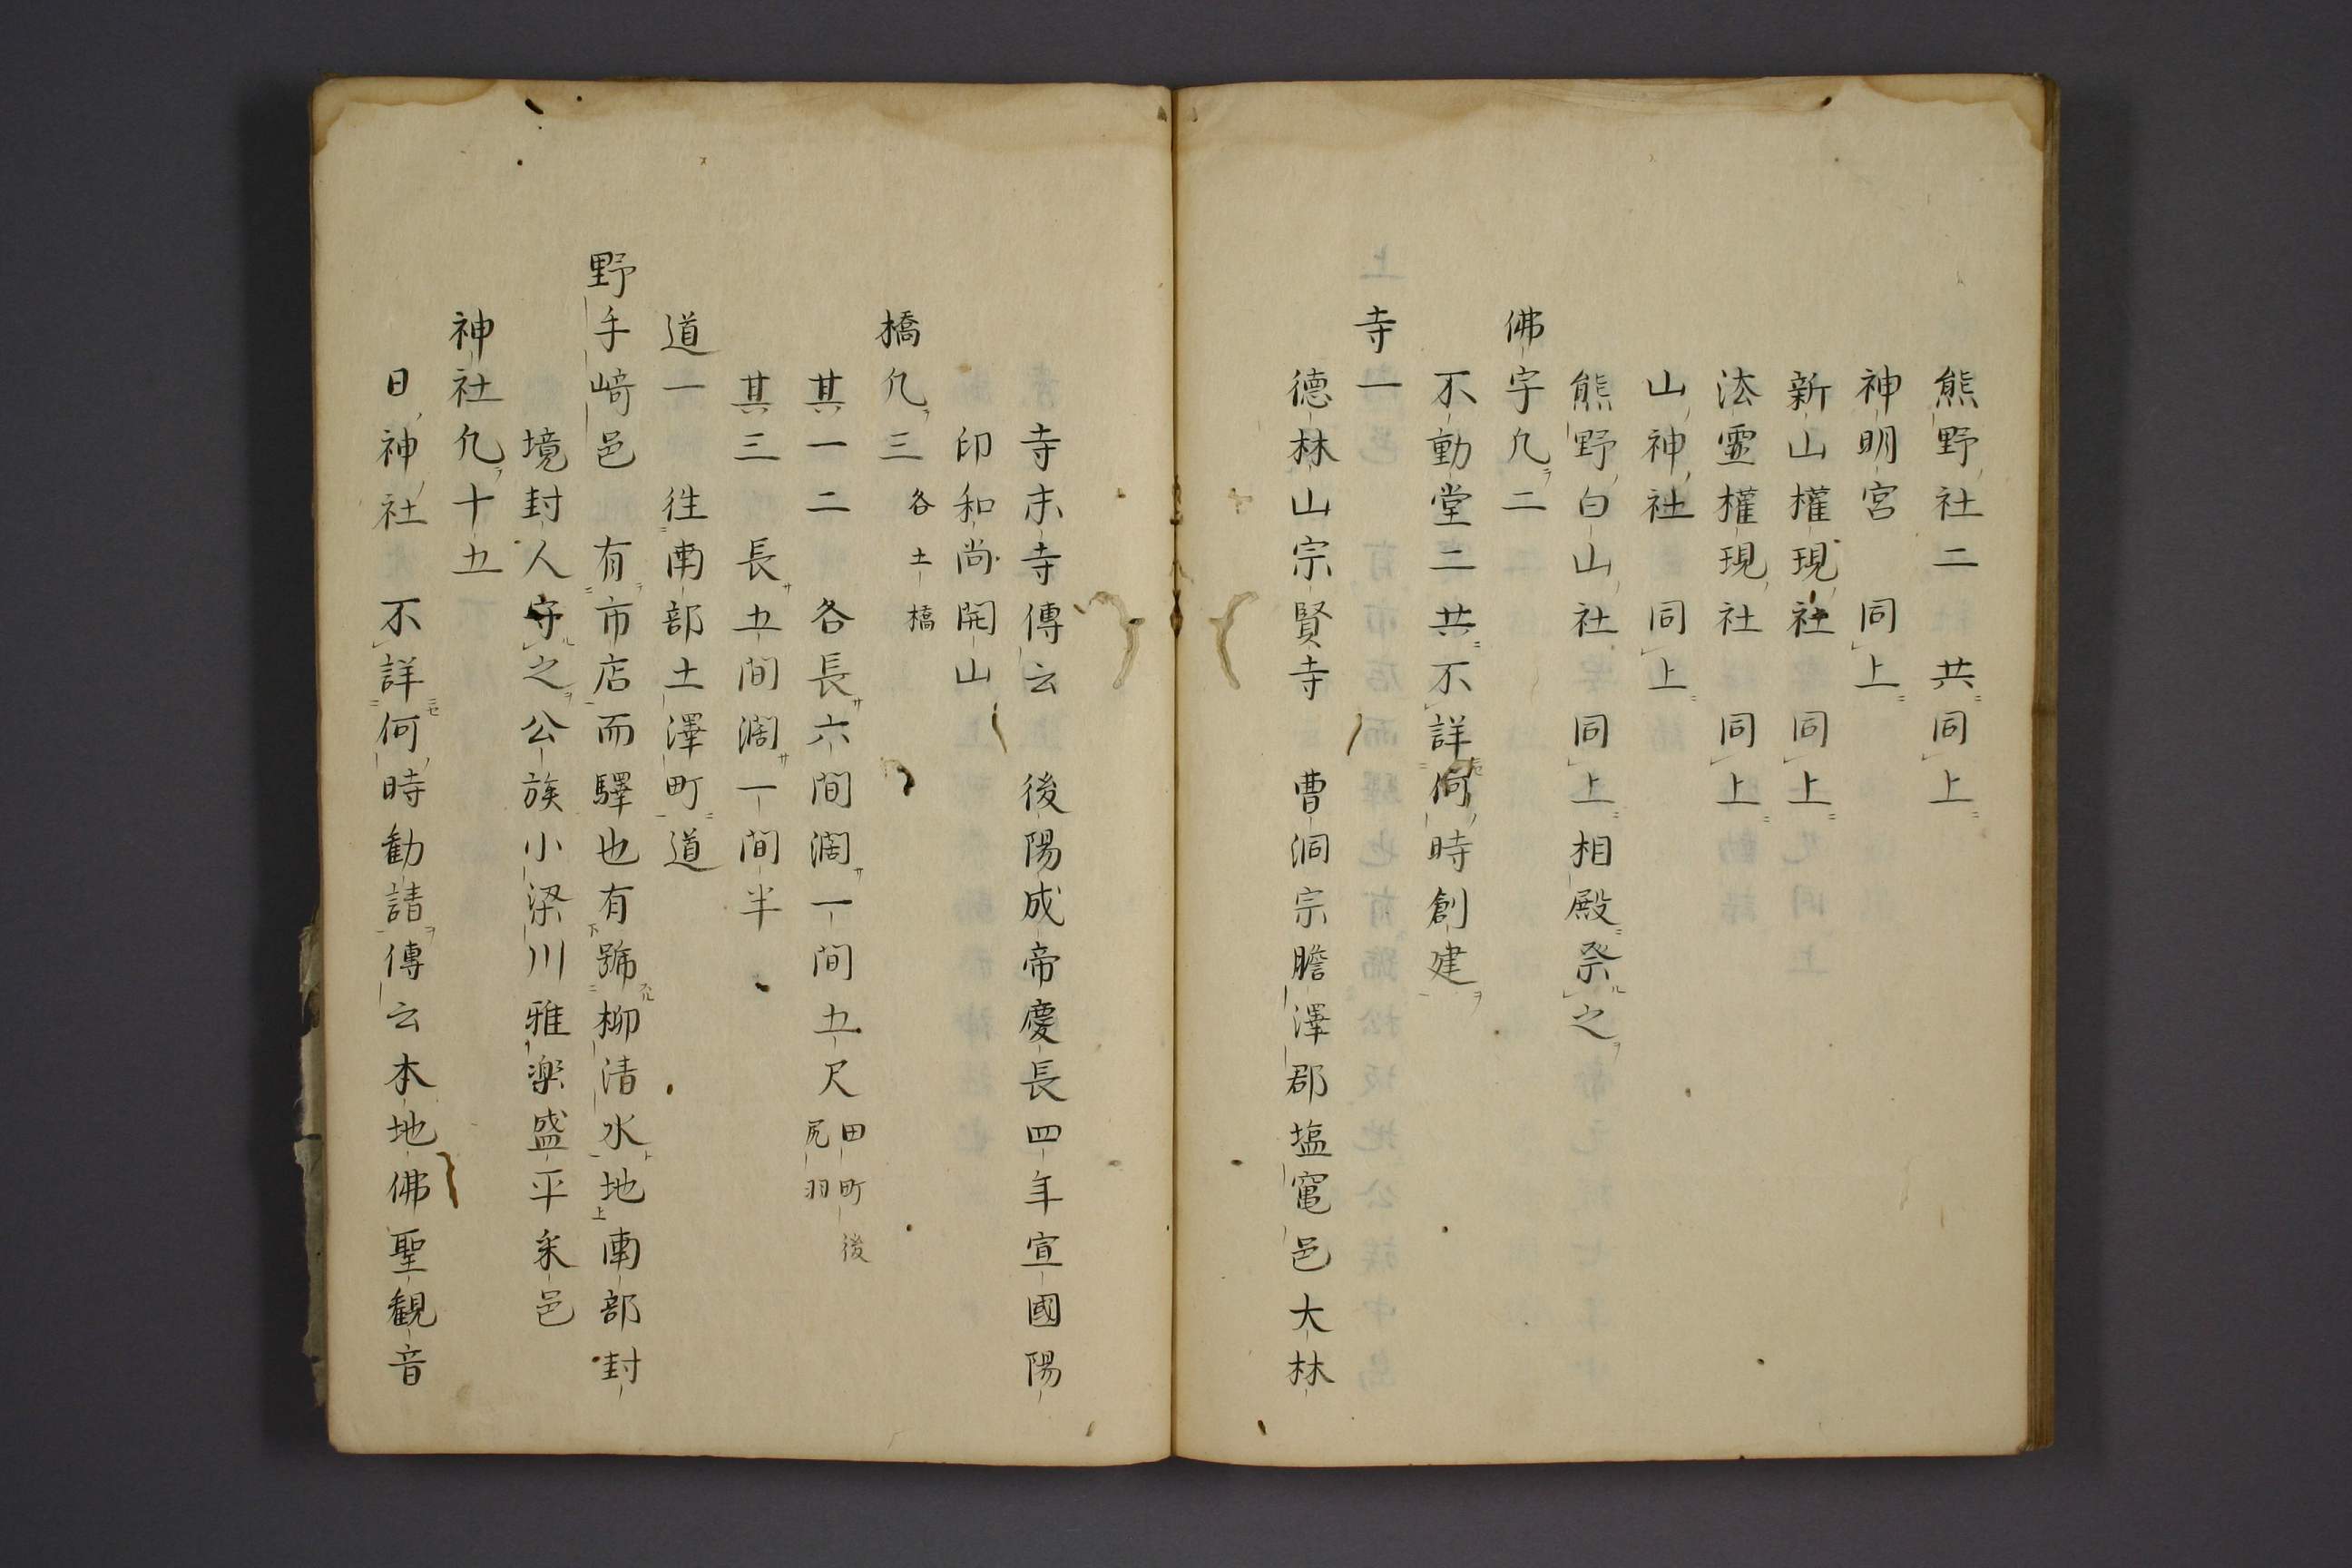 熊野社二 共同上
神明宮 同上
新山權現社 同上
法霊權現社 同上
山神社 同上
熊野白山社 同上相殿祭之
佛宇凢二
不動堂二共不詳何時創建
寺一
德林山宗賢寺 曹洞宗膽澤郡塩竃邑大林
寺末寺傳云 後陽成帝慶長四年宣國陽
印和尚開山
橋凢三 各土橋
其一二 各長六間濶一間五尺 田町後尻羽
其三 長五間濶一間半
道一 徃南部土澤町道
野手﨑邑 有市店而驛也有號柳清水地南部封
境封人守之公族小梁川雅楽盛平采邑
神社凢十五
日神社 不詳何時勧請傳云本地佛聖観音